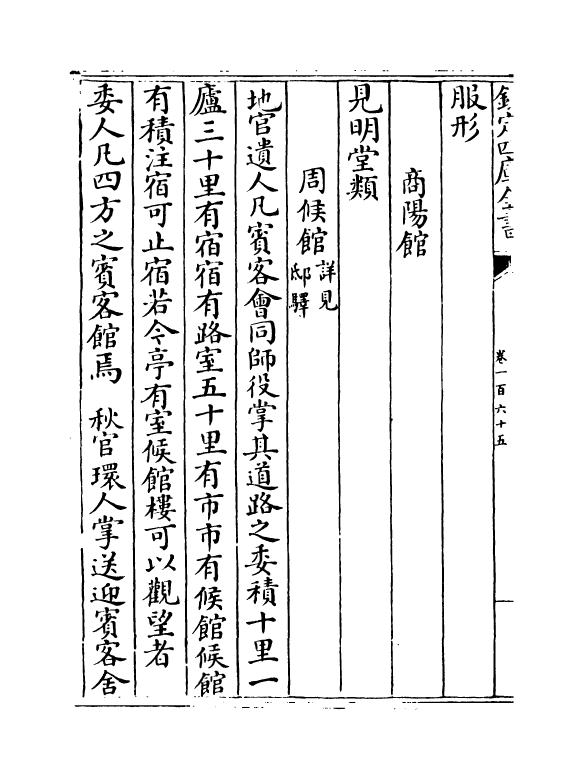 欽定四庫全書
卷一百六十五
服形
商陽館
見明堂類
周候館詳見
邸驛
地官遺人凡賓客會同師役掌其道路之委積十里一
廬三十里有宿宿有路室五十里有市市有候館候館
有積注宿可止宿若今亭有室候館樓可以觀望者
委人凡四方之賓客館焉　秋官環人掌送迎賓客舍